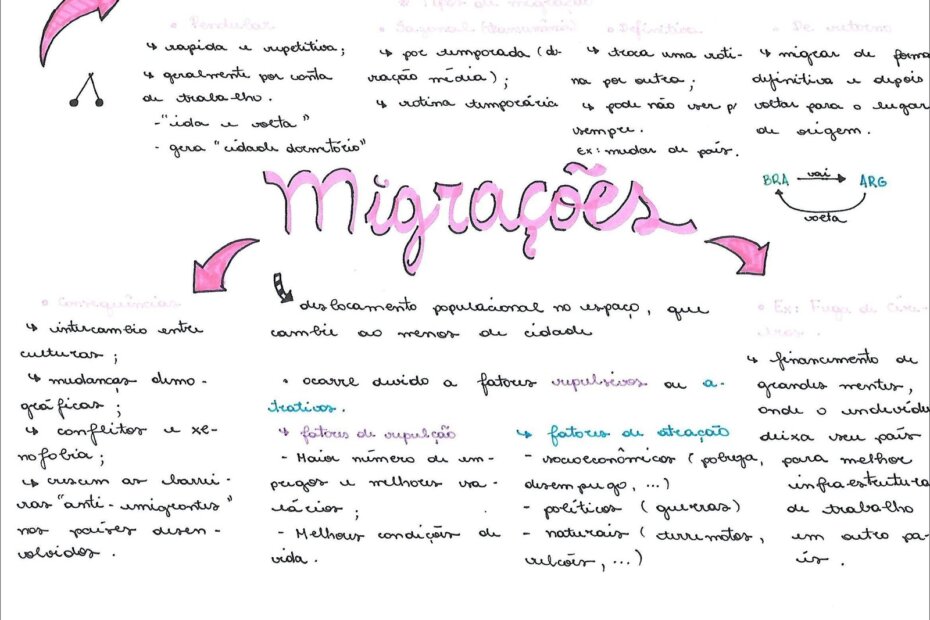 • Tipos de migração
• Pendular
↳ rapida e repetitiva;
↳ geralmente por conta
de trabalho.
-"ida e volta"
- gera "cidade dormitório"
• Sazonal (transumância)
↳ por temporada (du-
ração média);
↳ rotina temporária
• Definitiva
↳ troca uma roti-
na por outra;
↳ pode não ser p/
sempre.
Ex: mudar de país.
• De retorno
↳ migrar de forma
definitiva e depois
voltar para o lugar
de origem.
BRA vai ARG
volta
Migrações
deslocamento populacional no espaço, que
cambie ao menos de cidade
• ocorre devido a fatores repulsivos ou a-
trativos.
↳ fatores de repulsão
- Maior número de em-
pregos e melhores sa-
lários;
- Melhores condições de
vida.
↳ fatores de atração
- socioeconômicos (pobreza,
desemprego, ...)
- políticos (guerras)
- naturais (terremotos,
vulcões, ...)
• Consequências
↳ intercambio entre
culturas;
↳ mudanças demo-
gráficas;
↳ conflitos e xe-
nofobia;
↳ crescem as barrei-
ras "anti-imigrantes"
nos países desen-
volvidos.
• Ex: Fuga de Cére-
bros.
↳ financimento de
grandes mentes,
onde o indivídu
deixa seu país
para melhor
infraestrutura
de trabalho
em outro pa-
ís.